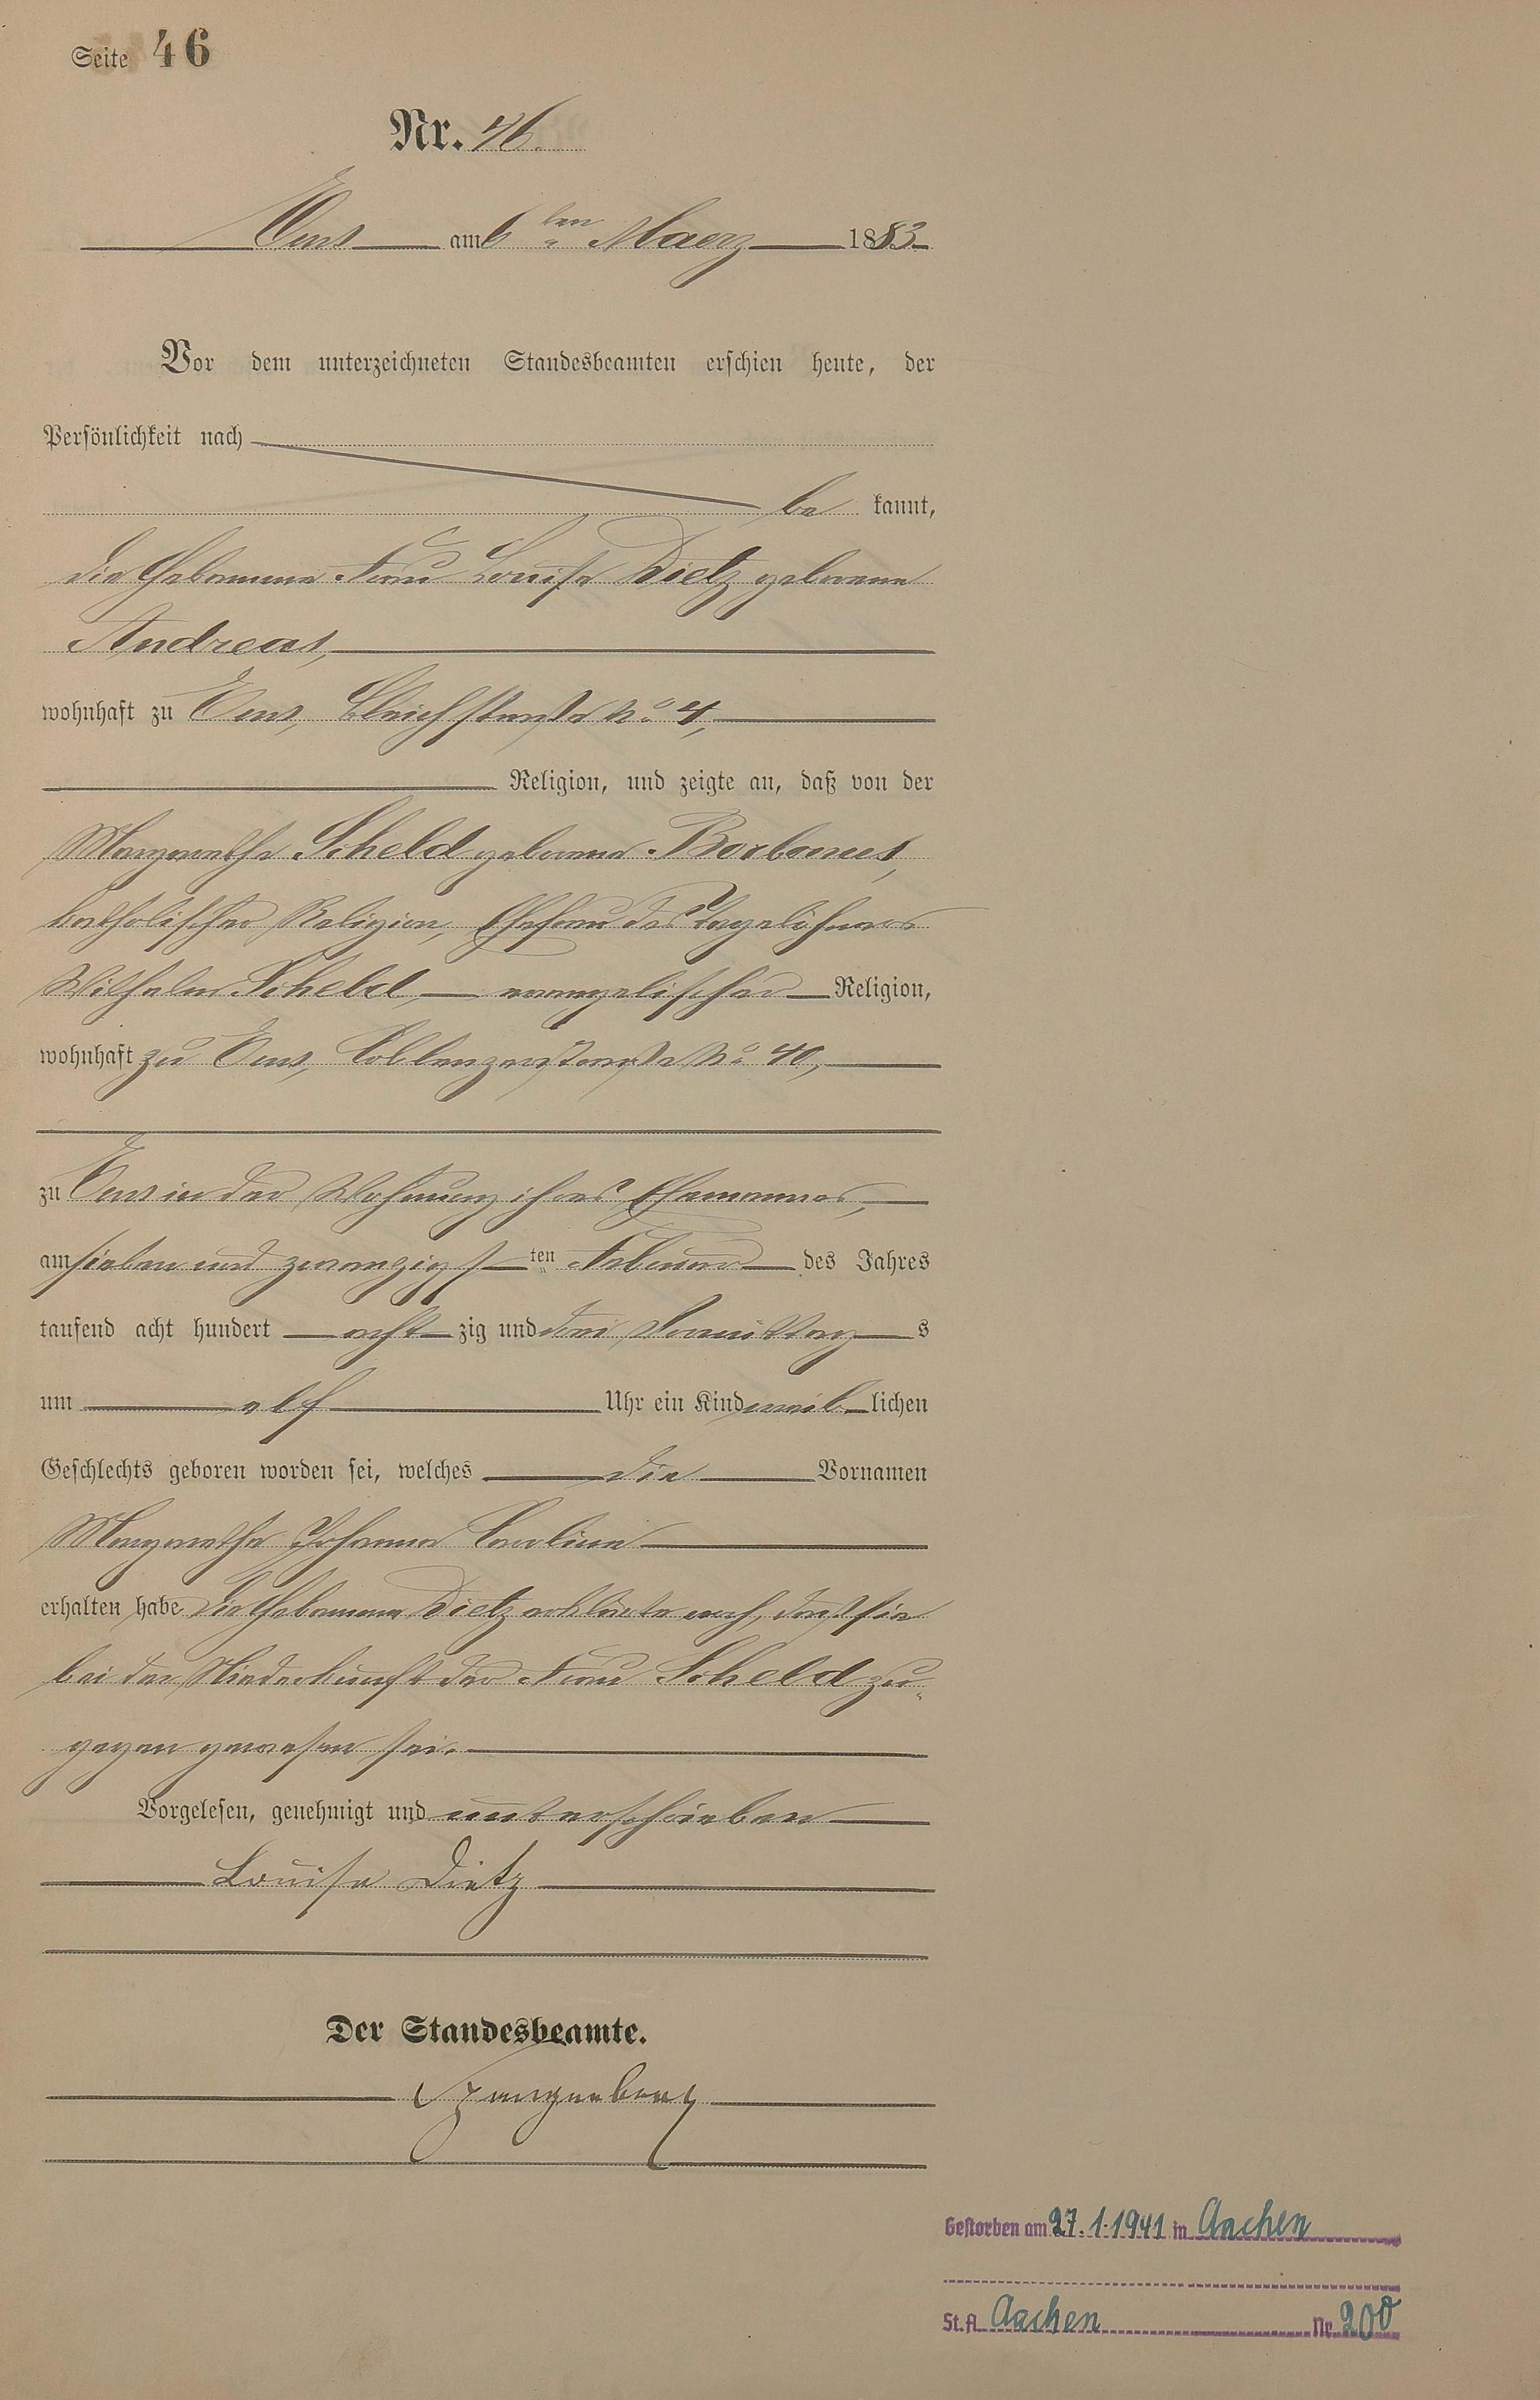 Seite 46
Nr. 46.
Ems am 6ten Maerz 1883
Vor dem unterzeichneten Standesbeamten erschien heute, der
Persönlichkeit nach
be kannt,
die Hebamme Frau Louise Dietz geborene
Andreas,
wohnhaft zu Ems, Bleichstraße No 4,
Religion, und zeigte an, daß von der
Margarethe Scheld geborene
katholischer Religion, Ehefrau des Tagelöhners
Wilhelm Scheld evangelischer Religion,
wohnhaft zu Ems, Coblenzerstraße No 40,
zu Ems in der Wohnung ihres Ehemannes,
am sieben und zwanzigsten Februar des Jahres
tausend acht hundert acht zig und drei Vormittags
um elf Uhr ein Kind weiblichen
Geschlechts geboren worden sei, welches die Vornamen
Margarethe Johanna Caroline
erhalten habe. Die Hebamme Dietz erklärte noch, daß sie
bei der Niederkunft der Frau Scheld zu-
gegen gewesen sei.
Vorgelesen, genehmigt und unterschrieben
Louise Dietz
Der Standesbeamte.
Spangenberg
Gestorben am 27.1.1941 in Aachen
St.A. Aachen Nr. 200